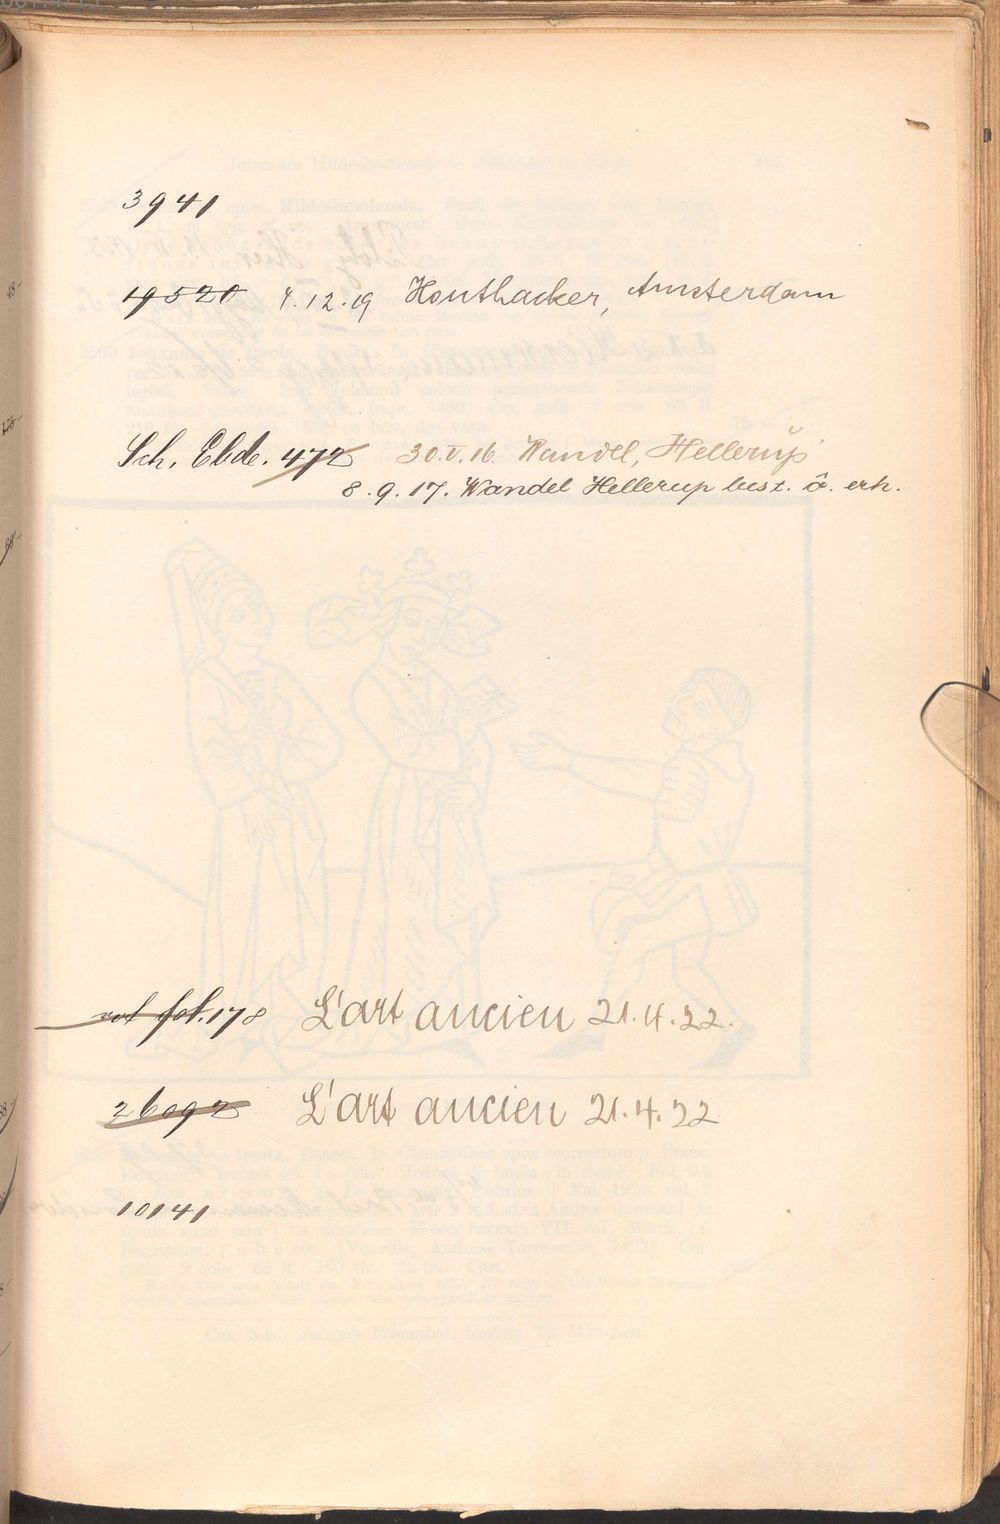 3941
19520 4.12.19 Houthacker, Amsterdam
Sch. Ebde. 472 30.V.16. Wandel, Hellerup
8.9.17. Wandel Hellerup best. erh.
rot fol. 178 L'art ancien 21.4.22.
26092 L'art ancien 21.4.22
10141